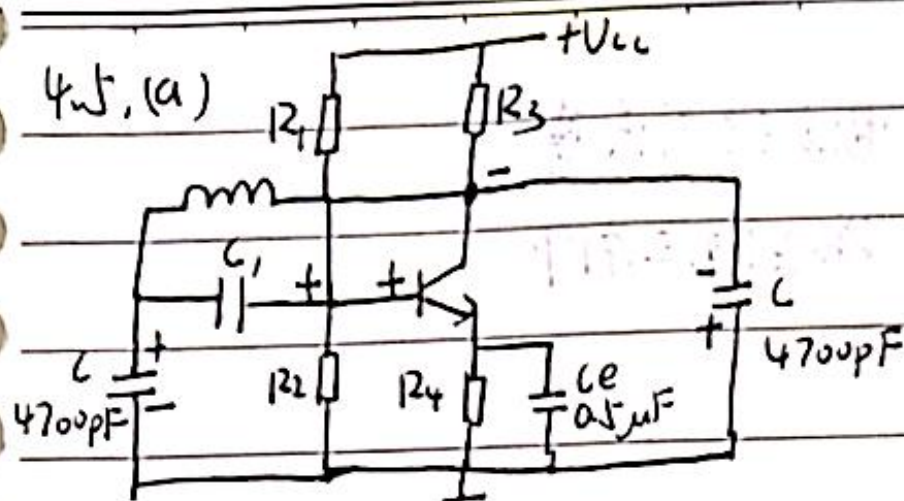 +Vcc
4.5.(a)
R1
R3
-
C1
+
+
-
C
+
4700pF
+
C
-
4700pF
R2
R4
Ce
0.5μF